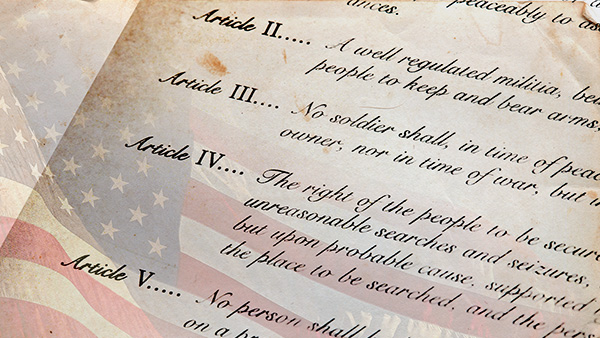 ances.
peaceably to ass
Article II..... A well regulated militia, bei
people to keep and bear arms,
Article III.... No soldier shall, in time of peac
owner, nor in time of war, but in
Article IV.... The right of the people to be secure
unreasonable searches and seizures,
but upon probable cause, supported
the place to be searched, and the pers
Article V..... No person shall
on a